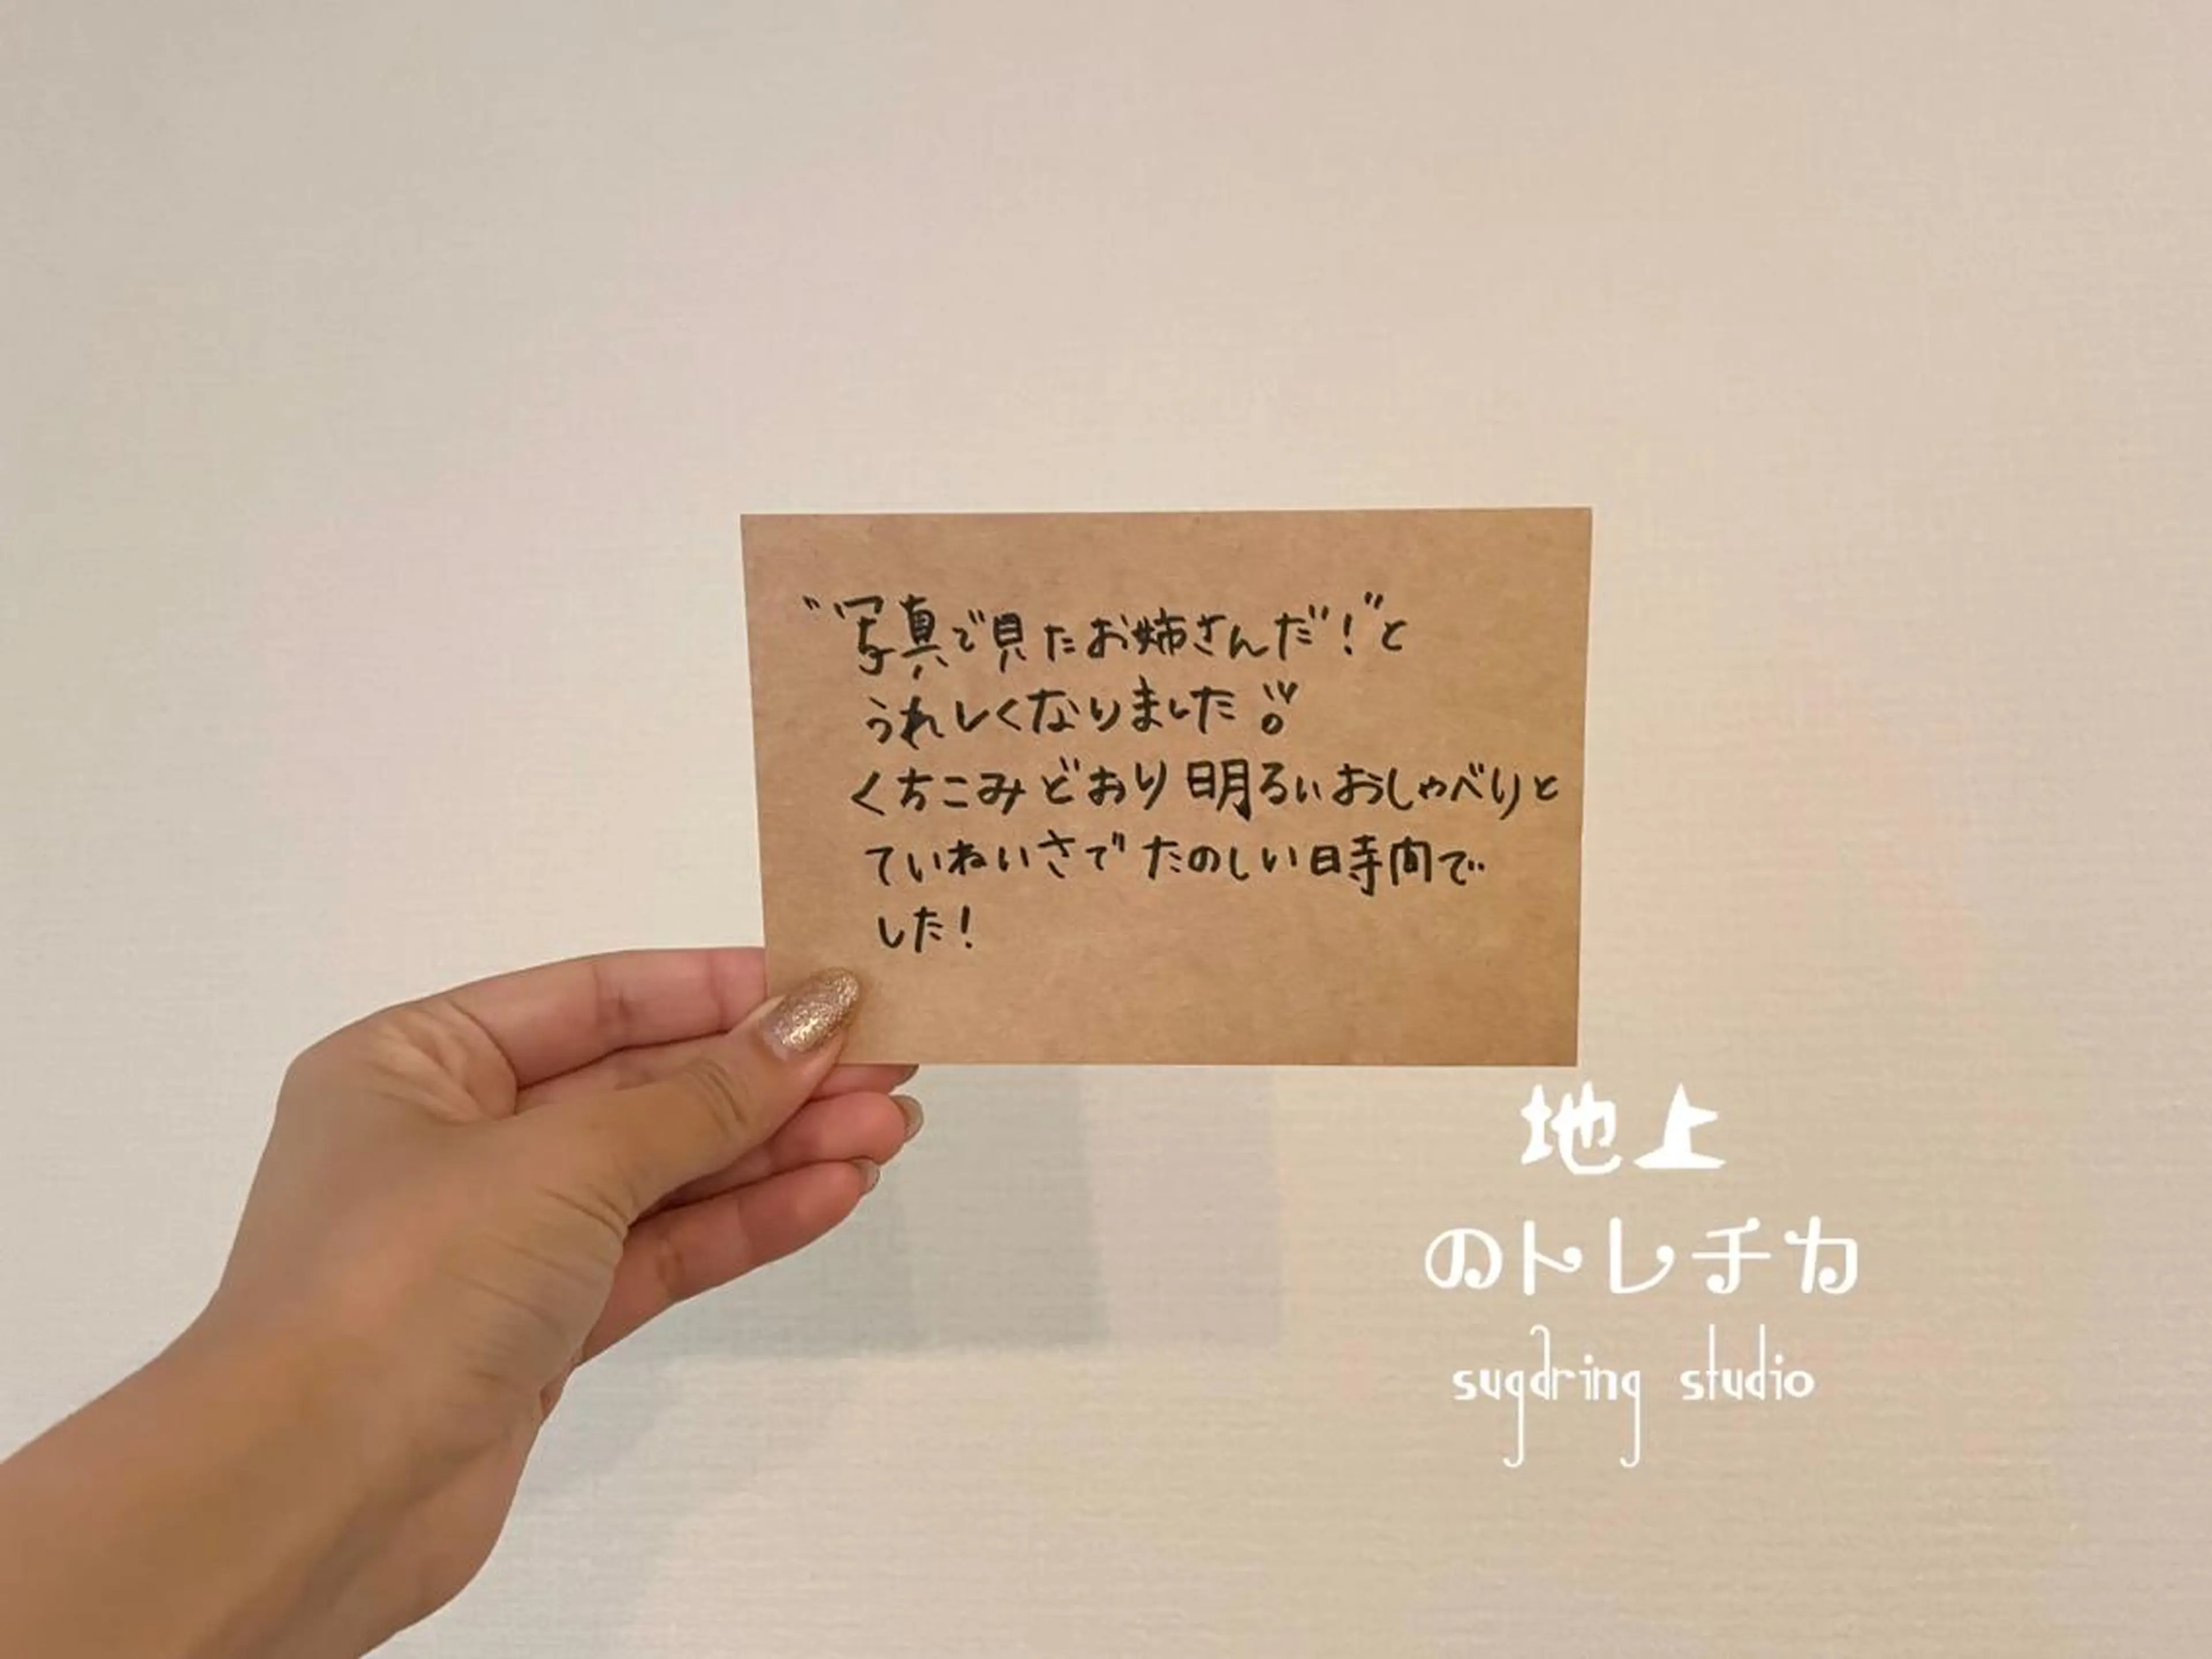 "写真で見たお姉さんだ!"と
うれしくなりました
くちこみどおり明るいおしゃべりと
ていねいさでたのしい時間で
した!
地上
のトレチカ
sugdring studio